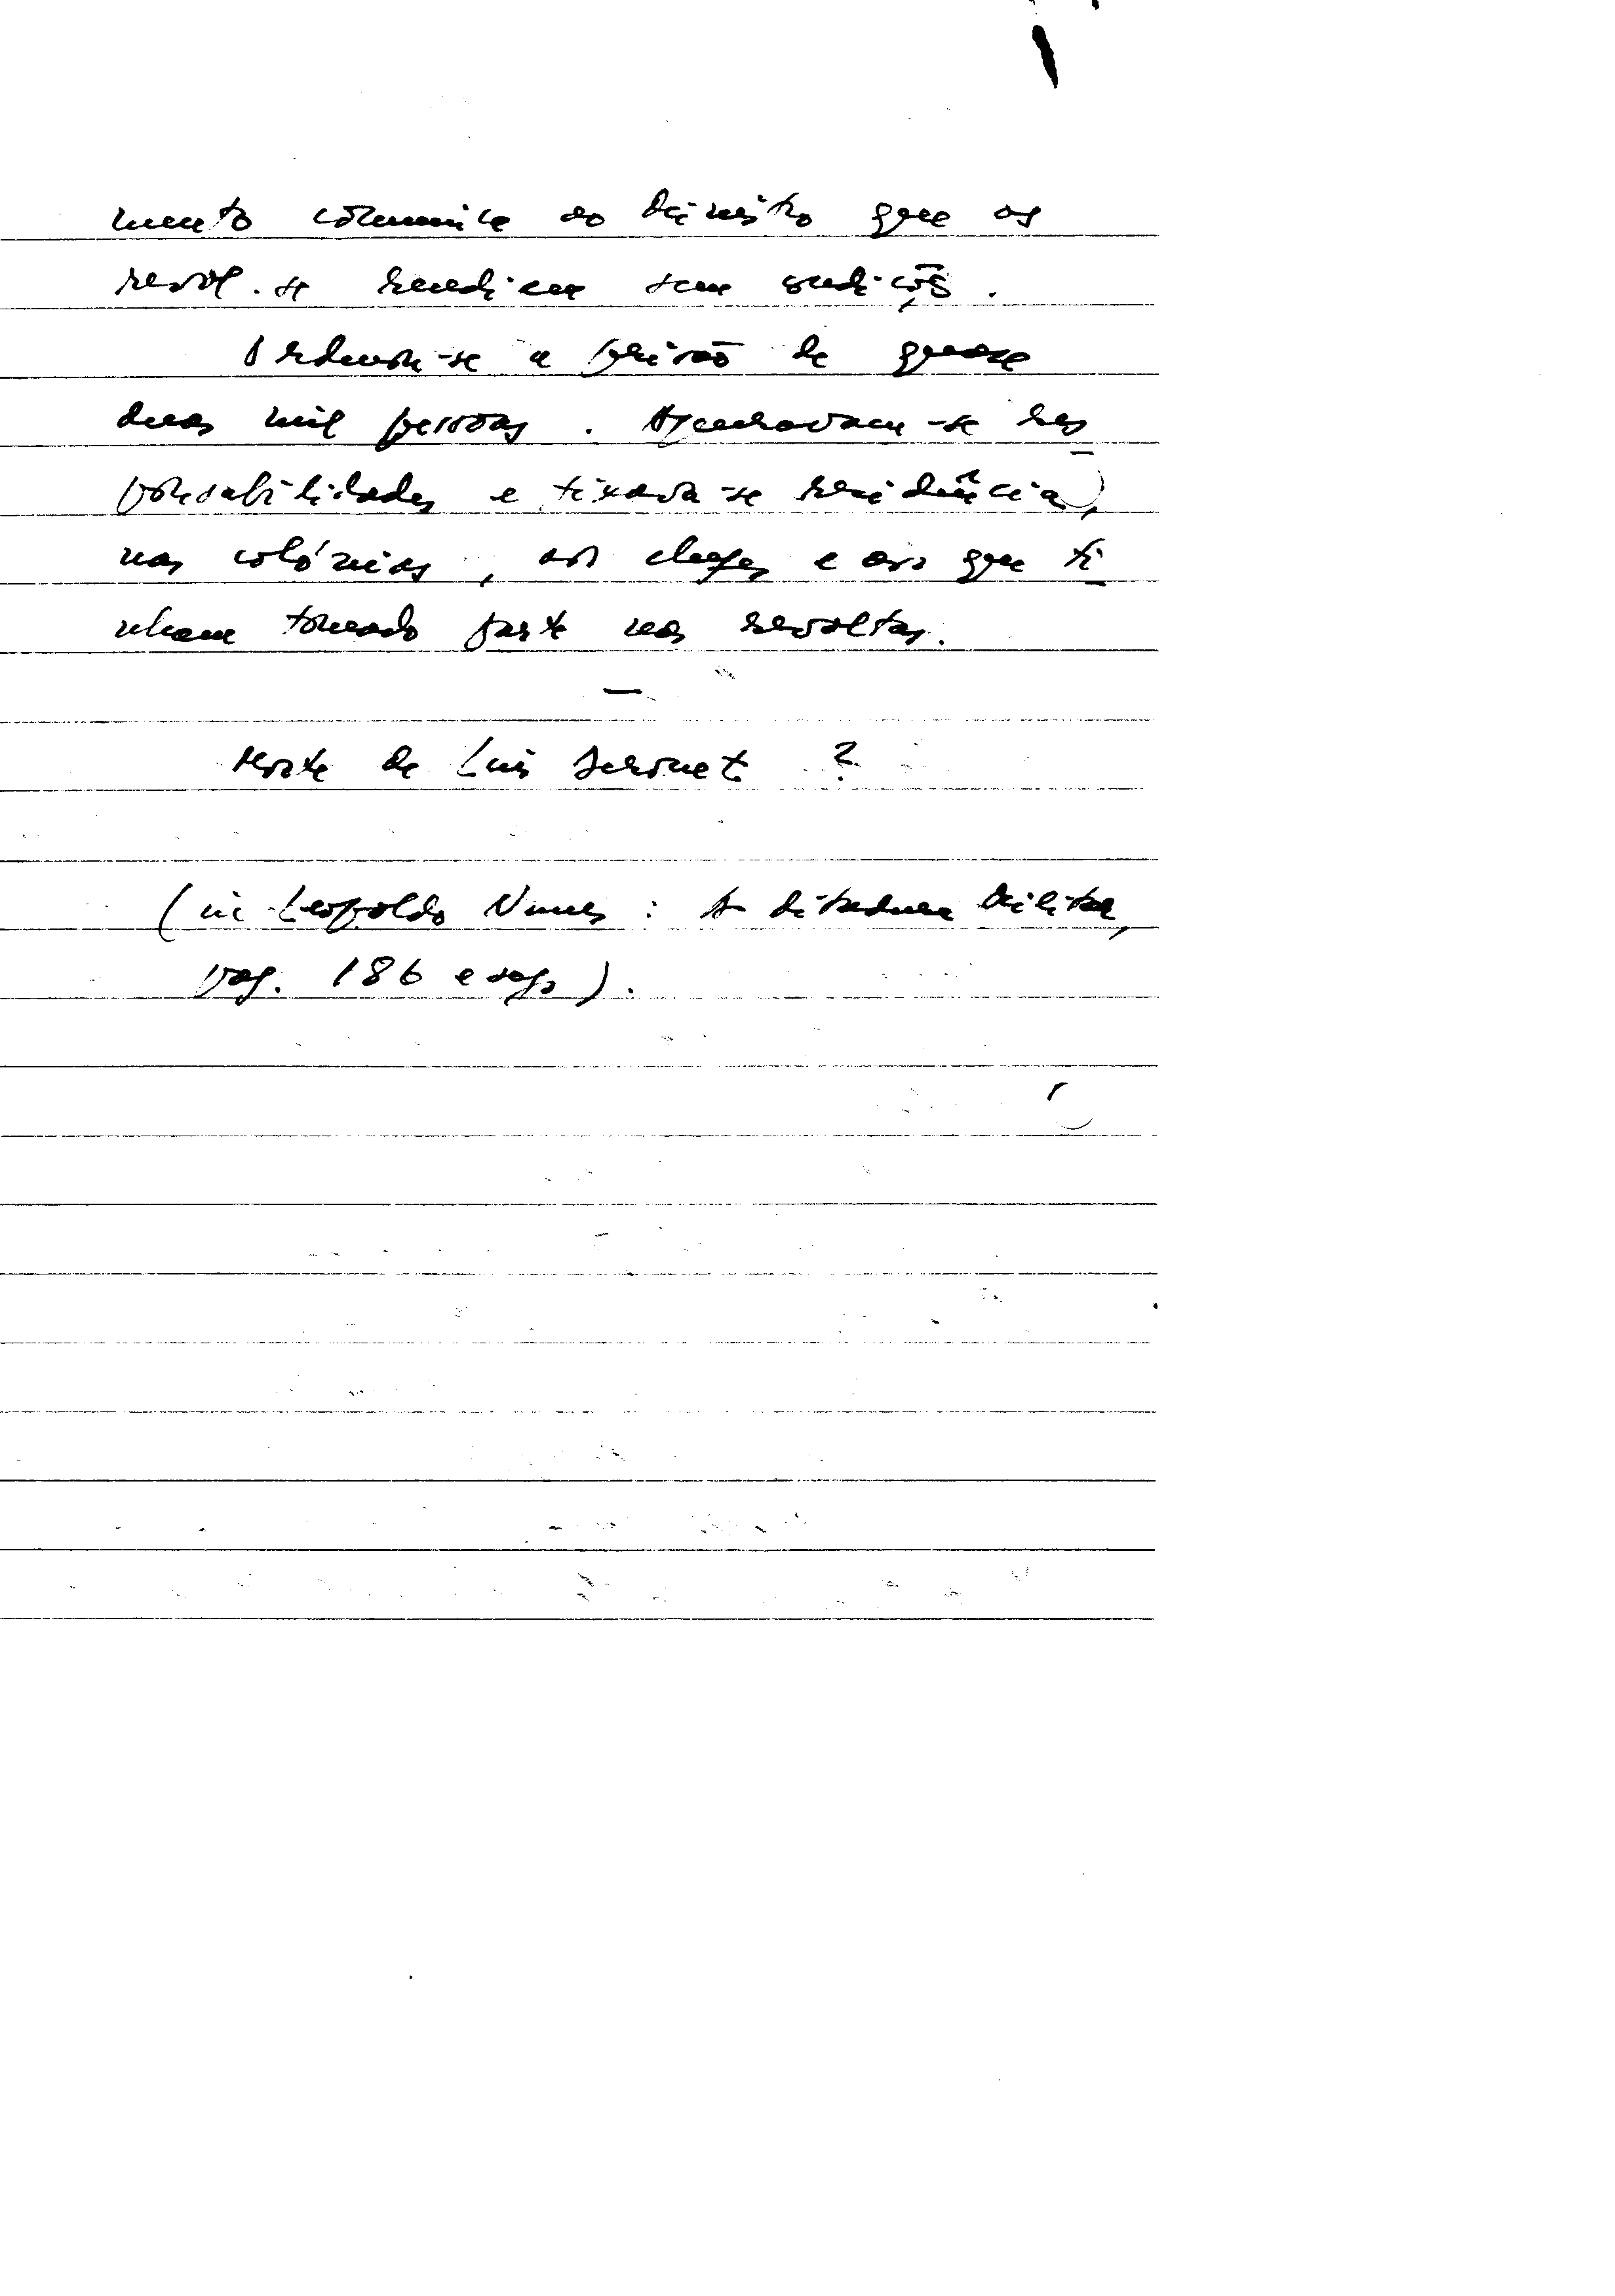 mento comunica ao Ministro que os
revol. se rendiam sem condições.
Ordenou-se a prisão de quase
duas mil pessoas. Apuravam-se res
ponsabilidades e fixava-se residência,
nas colónias, aos chefes e aos que ti
nham tomado parte nas revoltas.
—
Morte de Luis Derouet ?
(in Leopoldo Nunes : A ditadura Militar,
pag. 186 e segs).